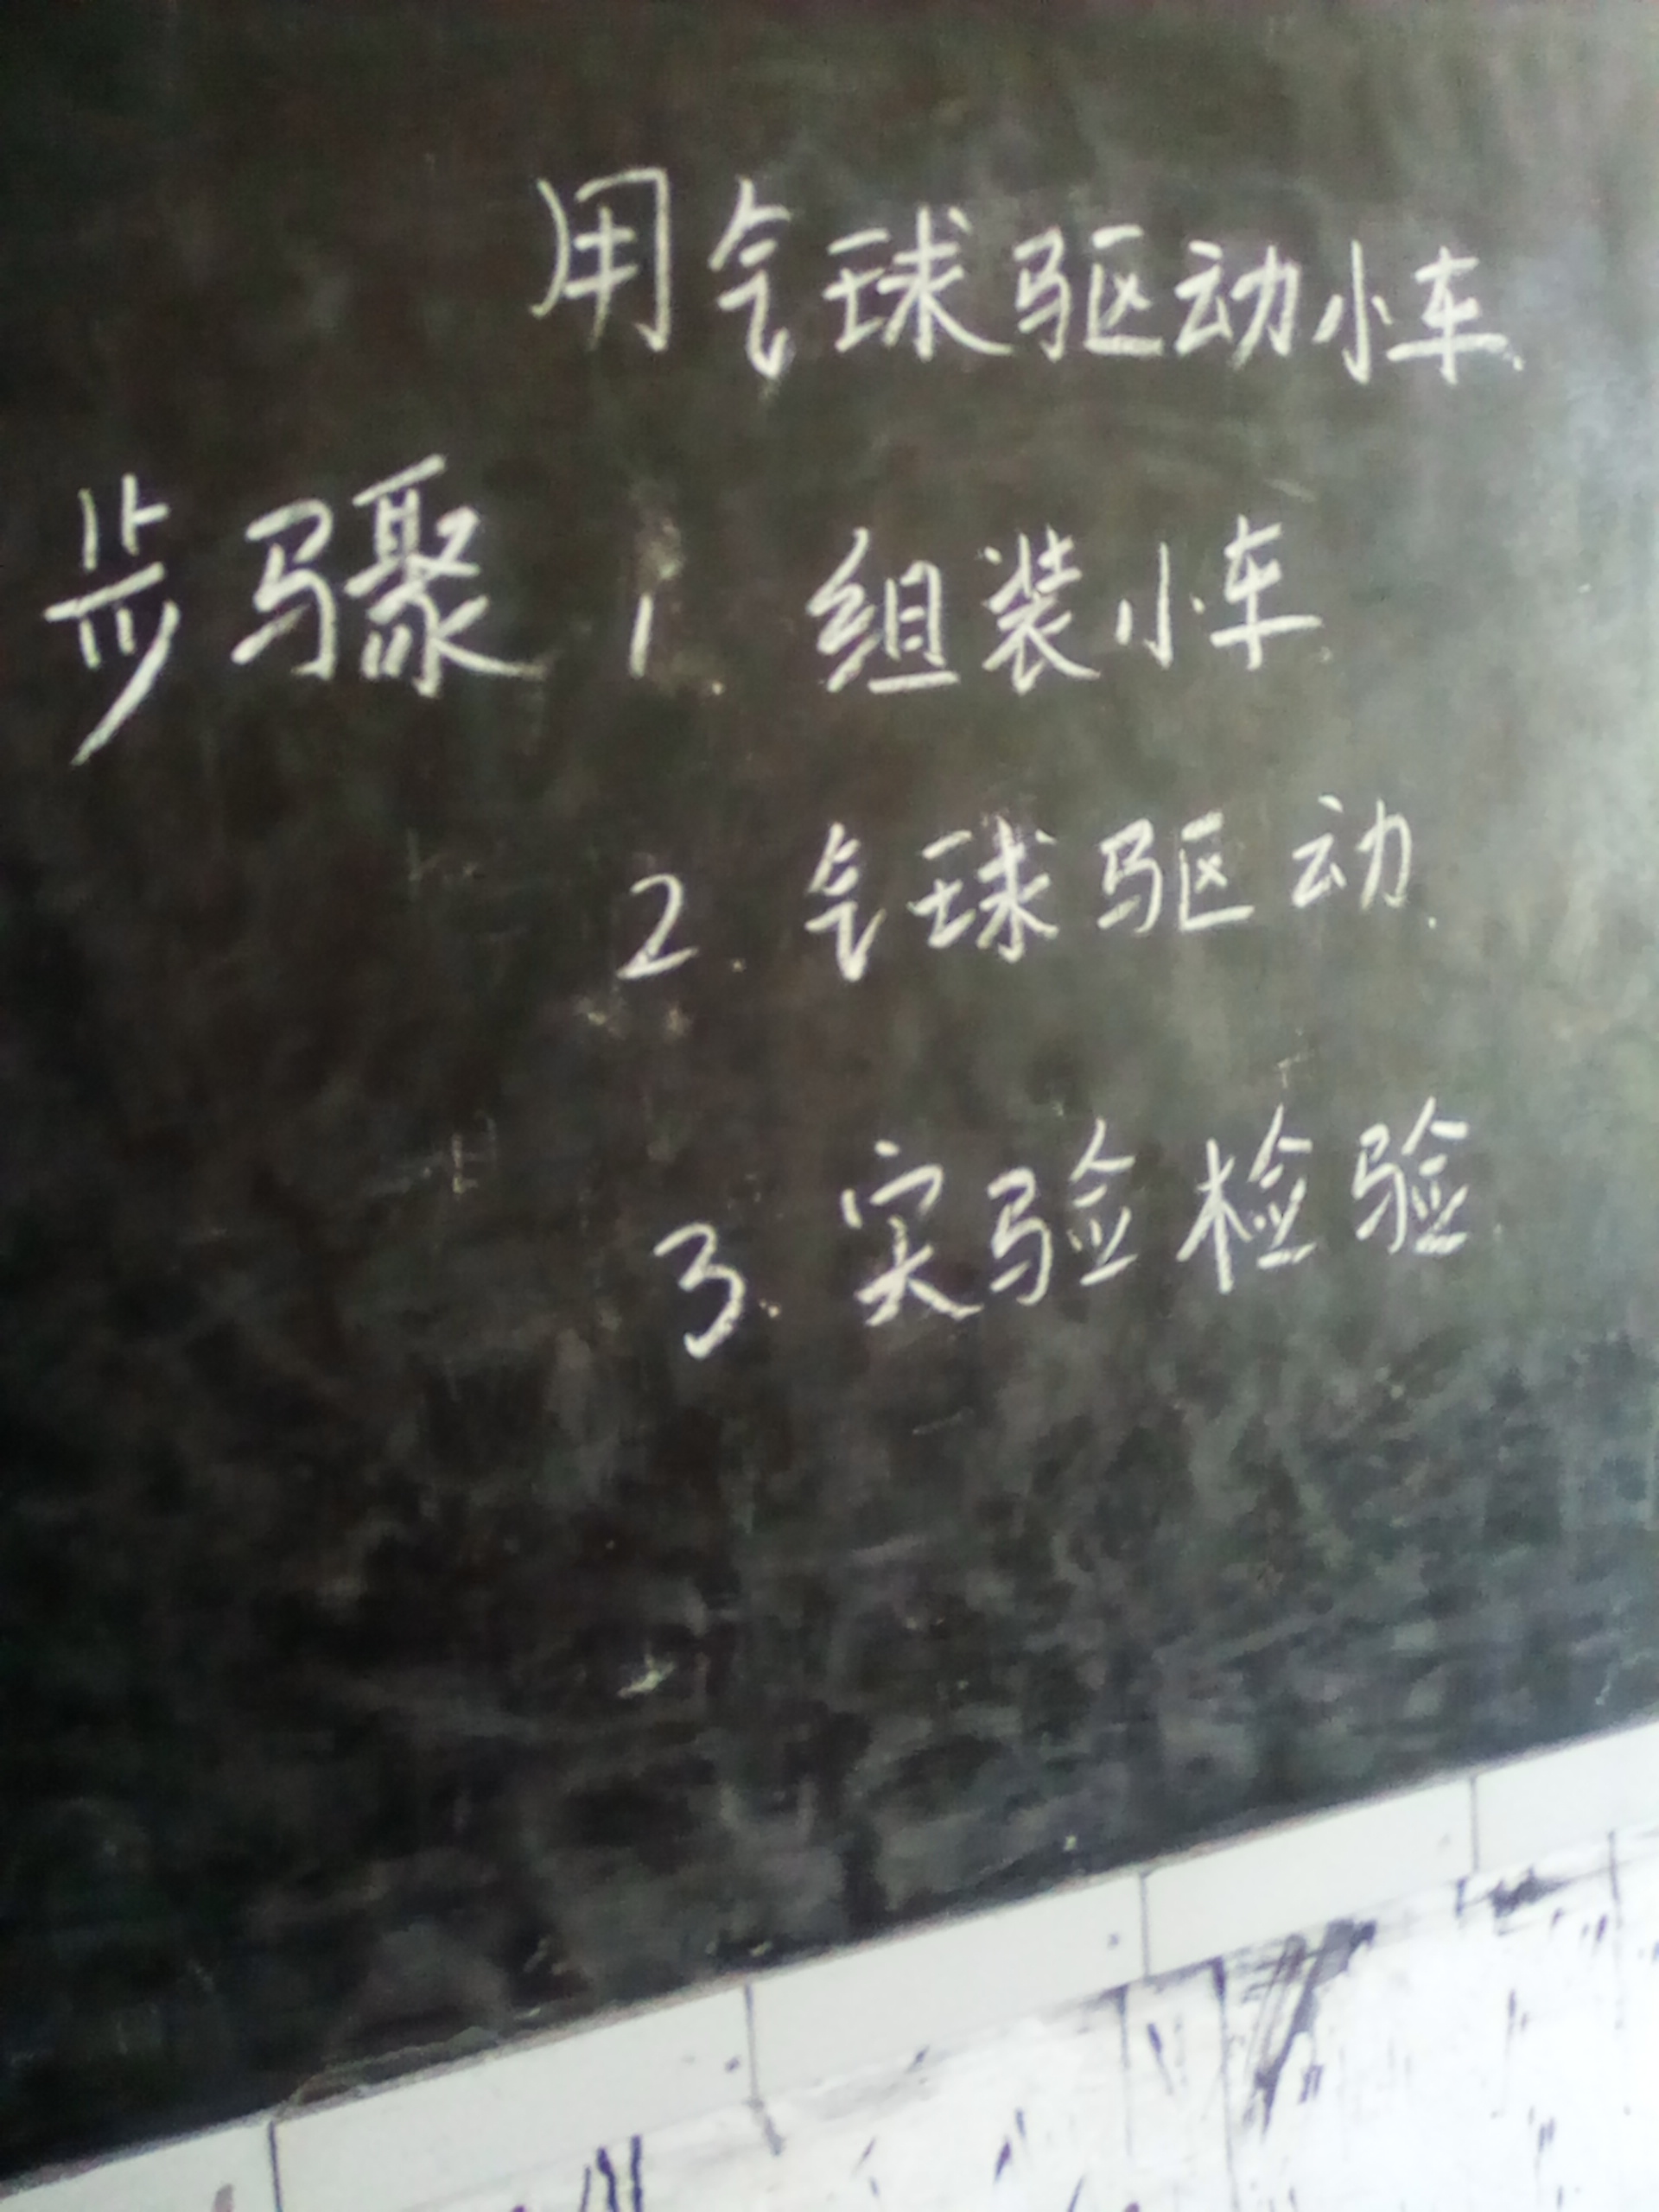 用气球驱动小车.
步骤 1. 组装小车.
2. 气球驱动.
3. 实验检验